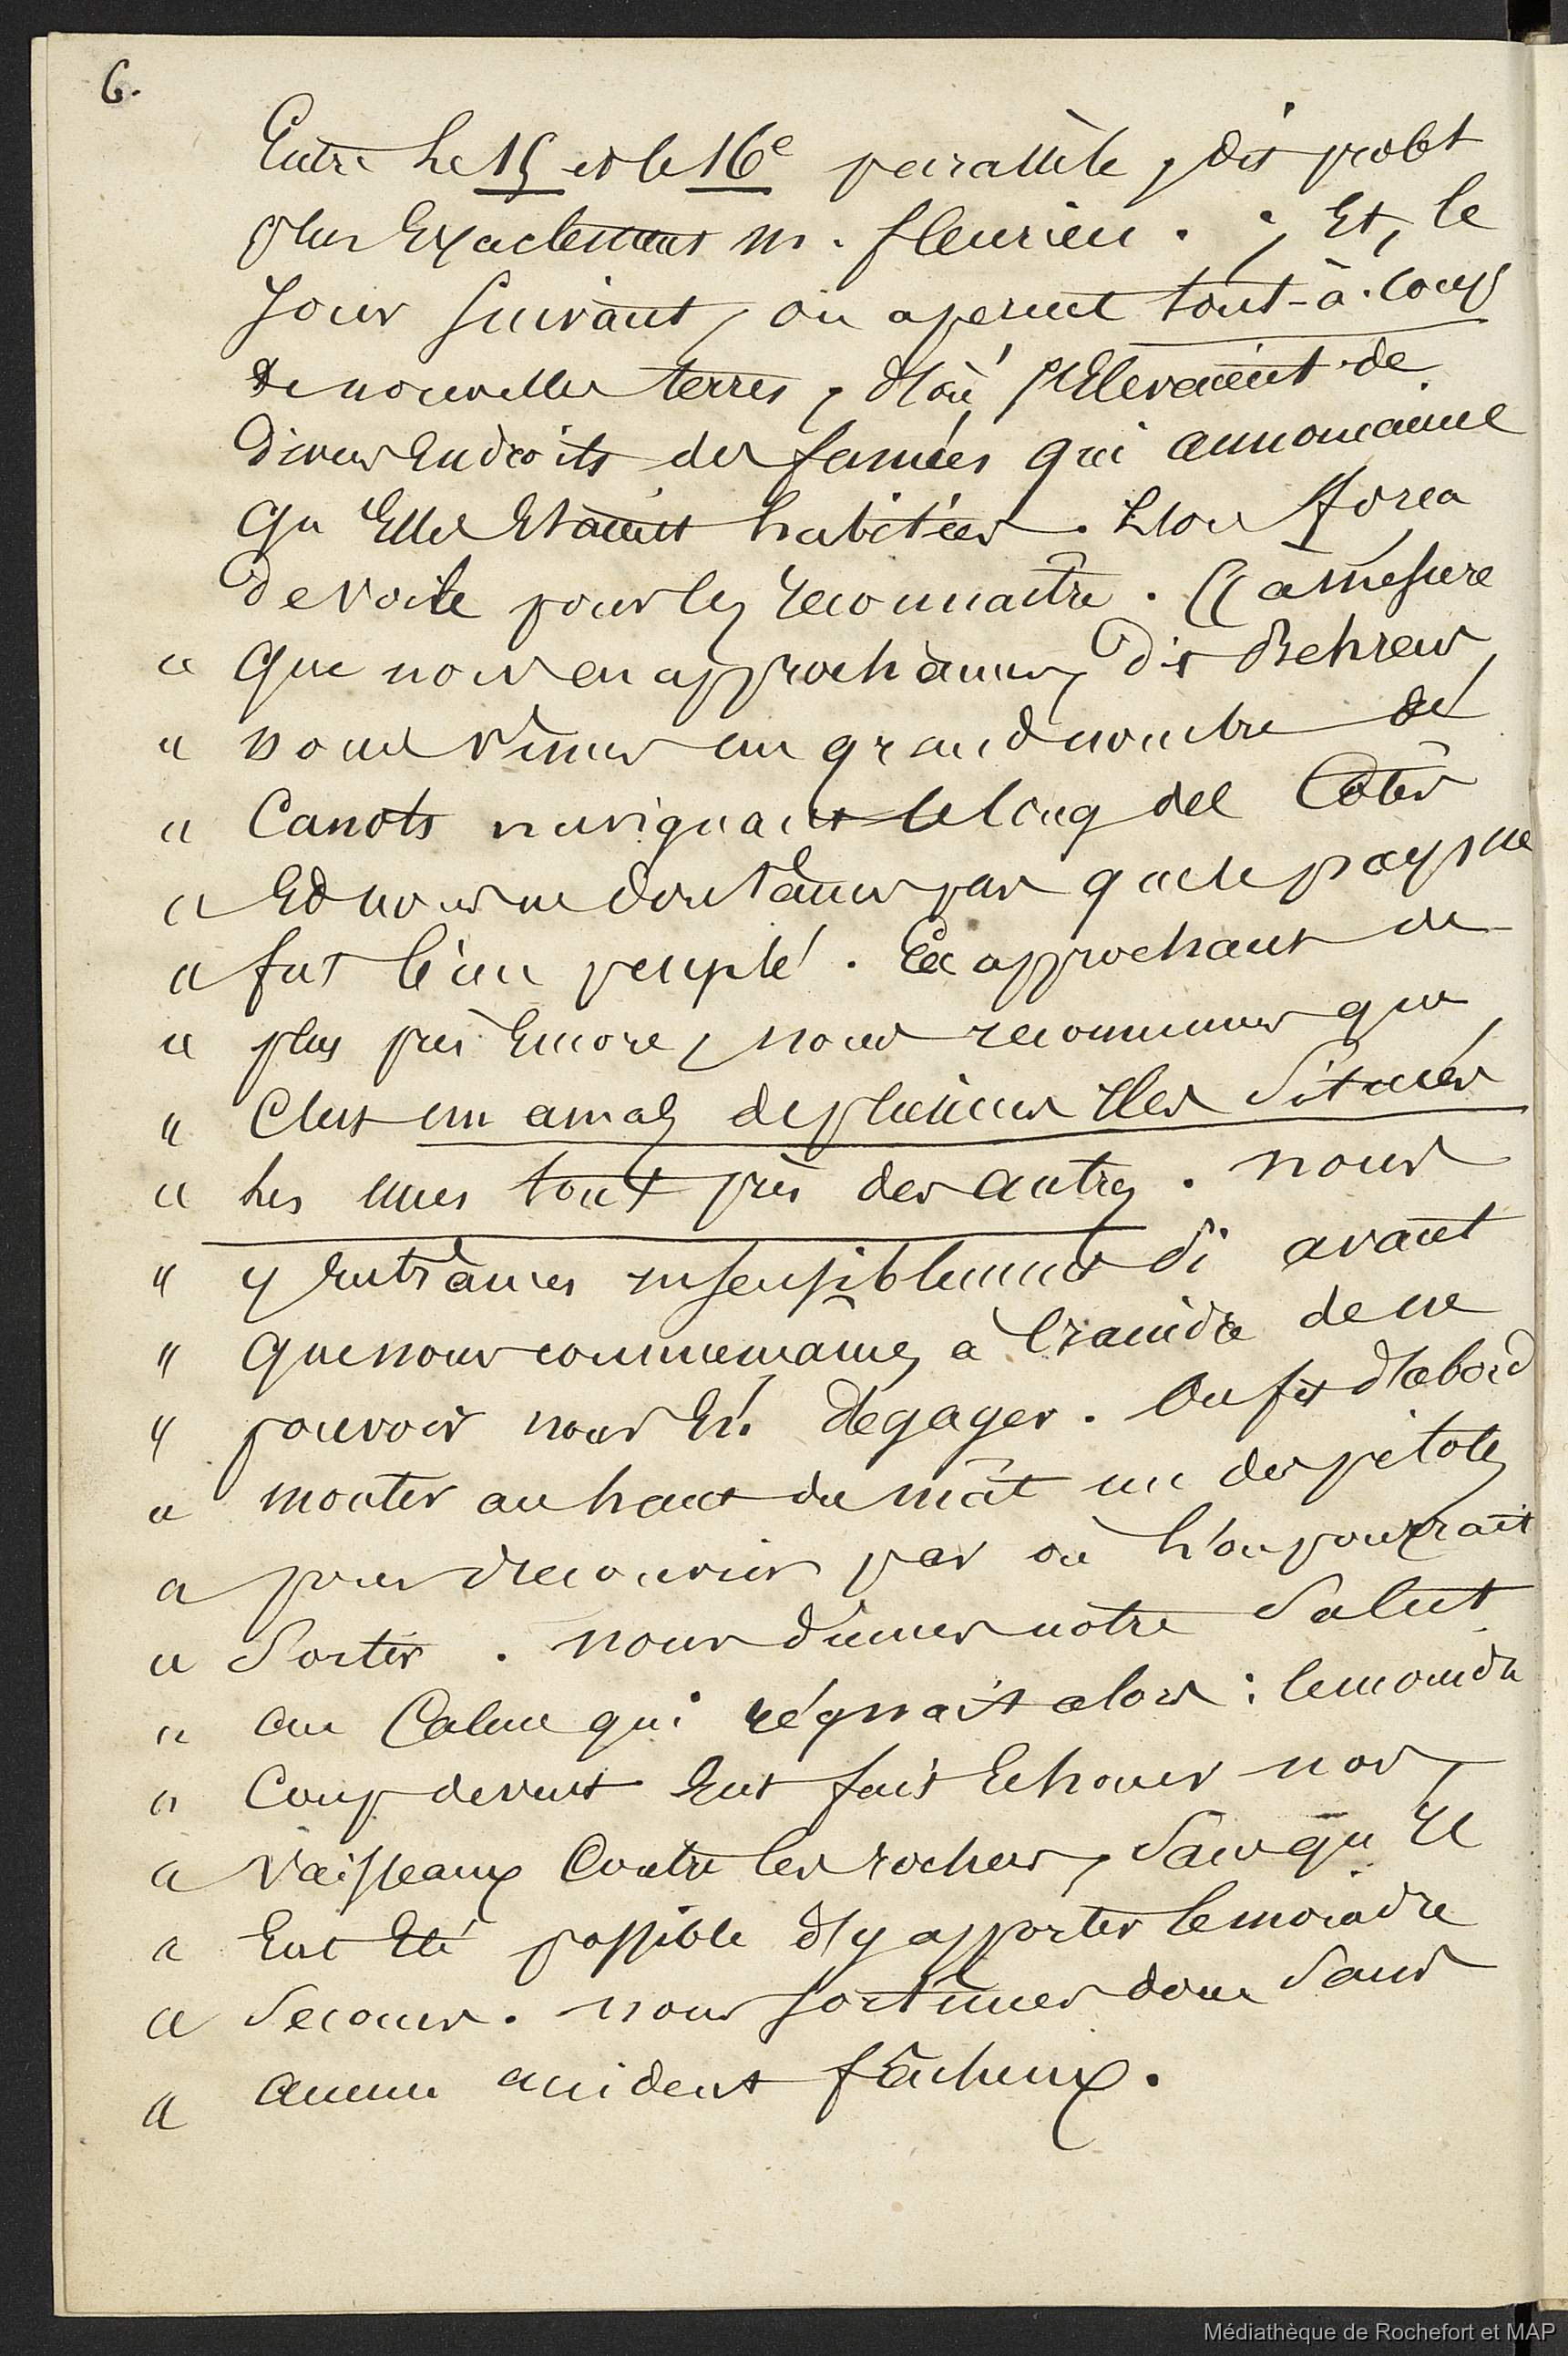 6.
Entre le 15 et le 16e parallèle, dit probt
plus Exactement m. fleurieu. ; Et, le
Jour suivant, on aperçut tout-à-coup
de nouvelles terres, d'où s'Elevaient de
Divers Endroits des fumées qui annonçaient
qu'Elles Etaient habitées. L'on força
De voile pour les reconnaître. (( a mesure
" que nous en approchâmes, dit Behrens,
" nous vîmes un grand nombre de
" Canots naviguant le long des Côtes
" Et nous ne doutâmes pas que le pays ne
" fut bien peuplé. En approchant de
" plus près Encore, nous reconnumes que
" C'est un amas de plusieurs Iles Situées
" les unes tout près des autres. nous
" y Entrâmes insensiblement si avant
" que nous commençames à Craindre de ne
" pouvoir nous En dégager. On fit d'abord
" monter au haut du mât un des pilotes
" pour découvrir par où l'on pourrait
" Sortir. nous dûmes notre Salut
" au Calme qui régnait alors : le moindre
" Coup de vent Eut fait Echouer nos
" Vaisseaux Contre les rochers, Sans qu'Il
" Eut Eté possible d'y apporter le moindre
" Secours. nous sortîmes donc Sans
" aucun accident fâcheux.
Médiathèque de Rochefort et MAP